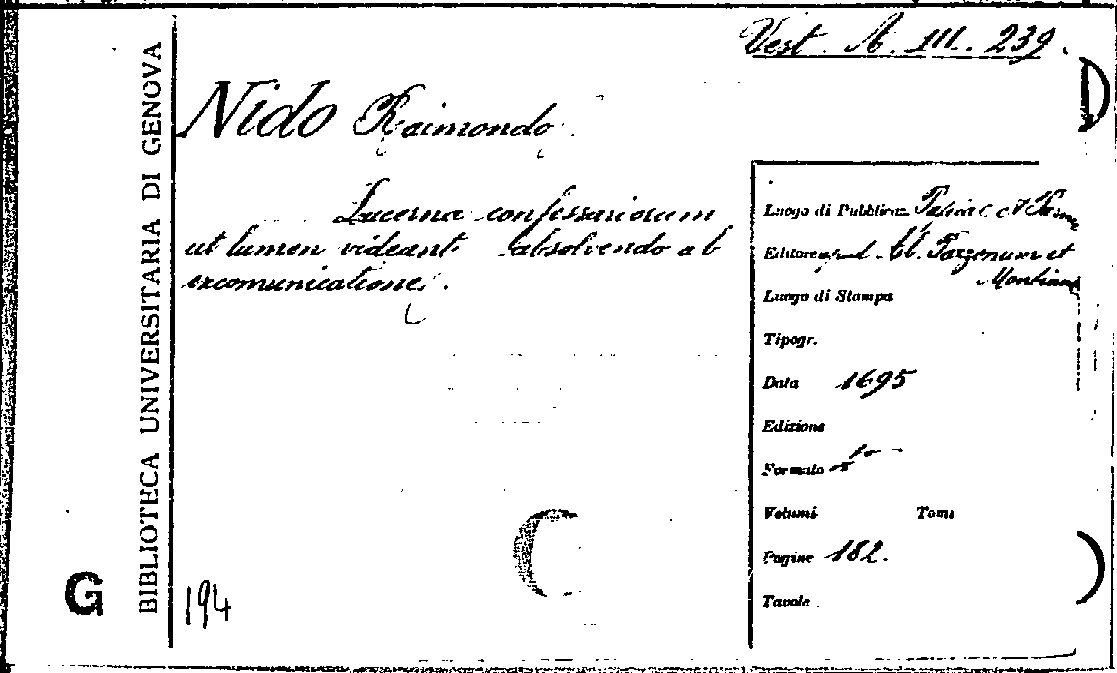 Vest. A. III. 239.
Nido Raimondo
Lucerna confessariorum
ut lumen videant absolvendo ab
excomunicatione.
BIBLIOTECA UNIVERSITARIA DI GENOVA
G
194
Luogo di Pubblicaz.
Editore
Luogo di Stampa
Tipogr.
Data 1695
Edizione
Formato
Volumi Tomi
Pagine 182.
Tavole